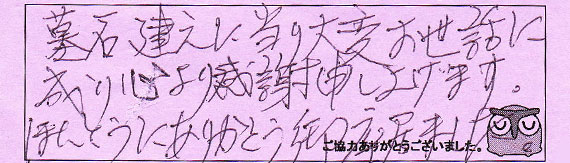 墓石建立に当り大変お世話に
成り心より感謝申し上げます。
ほんとうにありがとう御座いました
ご協力ありがとうございました。